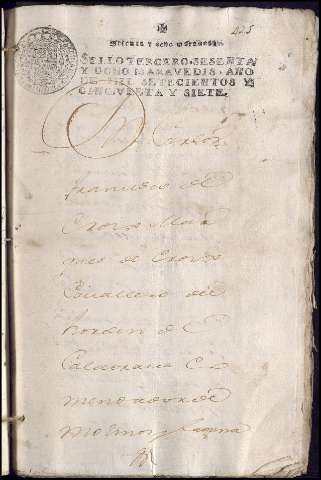 425
Sesenta y ocho maravedis.
SELLO TERCERO, SESENTA
Y OCHO MARAVEDIS, AÑO
DE MIL SETECIENTOS Y
CINQVENTA Y SIETE.
Carlos
francisco de
Croix Mar
ques de Croix
Cavallero del
horden de
Calatrava C
mendador de
molinos y Laguna